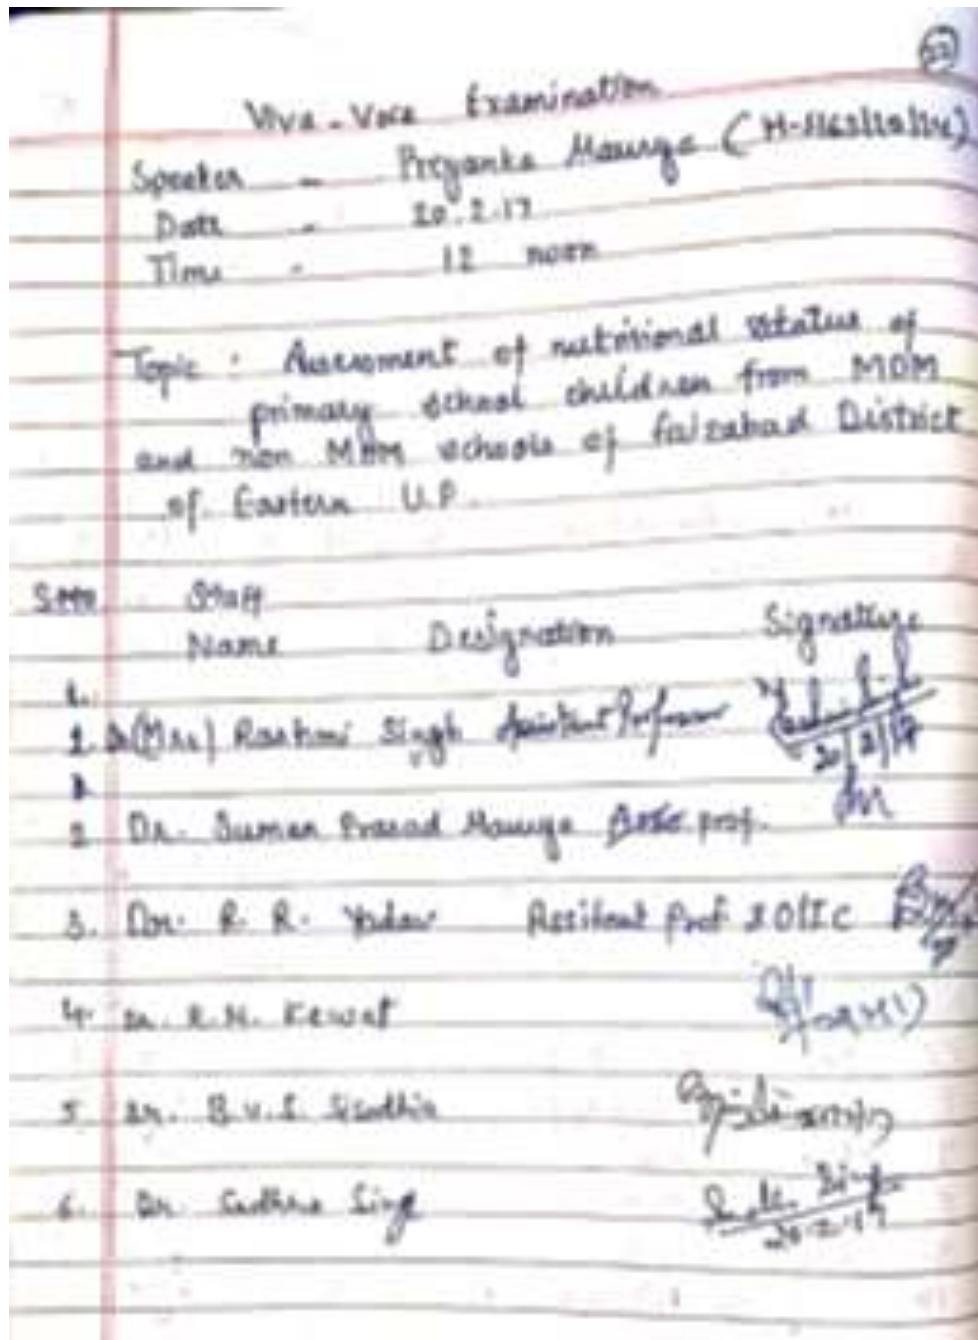 Viva-Voce Examination
Speaker - Priyanka Maurya
Date - 20.2.17
Time - 12 noon
Topic : Assessment of nutritional status of
primary school children from MDM
and non MDM schools of Faizabad District
of Eastern U.P.
S.No. Staff
Name Designation Signature
1.
1. Dr(Mrs) Rashmi Singh Assistant Professor
20/2/17
2. Dr. Suman Prasad Maurya prof.
3. Dr. R. R. Yadav Assitant Prof
4. Dr. R.N. Kewat
5. Dr. B.V.S. Sisodhia
6. Dr. Sadhna Sing
20-2-17